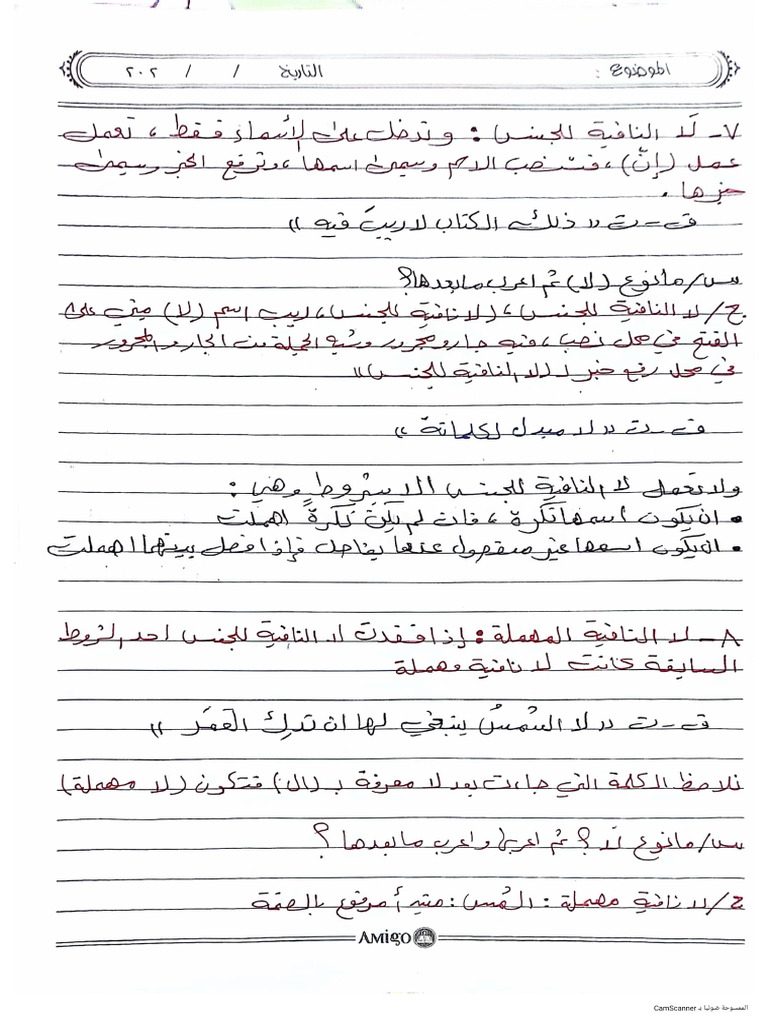 الموضوع : التاريخ / / ٢٠٢
٧- لَا النافية للجنس : وتدخل على الأسماء فقط ، تعمل
عمل (إنّ) ، فتنصب الاسم ويسمى اسمها ، وترفع الخبر ويسمى
خبرها .
ق - ت « ذلك الكتاب لا ريبَ فيه »
س/ ما نوع (لا) ثم اعرب ما بعدها؟
ج/ لا النافية للجنس ، (لا نافية للجنس) ، ريب اسم (لا) مبني على
الفتح في محل نصب ، فيه جار ومجرور وشبه الجملة من الجار والمجرور
في محل رفع خبر لـ (لا النافية للجنس)
ق - ت « لا مبدل لكلماته »
ولا تعمل لا النافية للجنس الا بشروط وهي :
• ان يكون اسمها نكرة ، فان لم يكن نكرةً اهملت
• ان يكون اسمها غير مفصول عنها بفاصل فإذا فصل بينهما اهملت
٨- لا النافية المهملة : إذا فقدت لا النافية للجنس احد الشروط
السابقة كانت لا نافية مهملة
ق - ت « لا الشمسُ ينبغي لها ان تدرك القمرَ »
نلاحظ الكلمة التي جاءت بعد لا معرفة بـ (ال) فتكون (لا مهملة)
س/ ما نوع لَا ؟ ثم اعربها واعرب ما بعدها ؟
ج/ لا نافية مهملة : الشمس : مبتدأ مرفوع بالضمة
AmiGO
الممسوحة ضوئيا بـ CamScanner